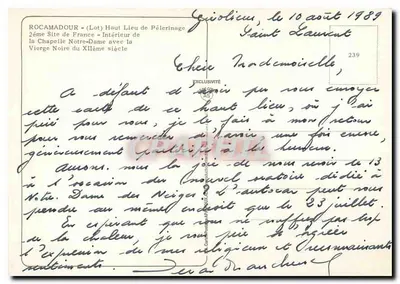 ROCAMADOUR - (Lot) Haut Lieu de Pèlerinage
2ème Site de France - Intérieur de
la Chapelle Notre-Dame avec la
Vierge Noire du XIIème siècle
le 10 août 1989
Saint Laurent
239
EXCLUSIVITÉ
Chère Mademoiselle,
A défaut d'avoir pu vous envoyer
cette carte de ce haut lieu, où j'ai
prié pour vous, je le fais à mon retour
pour vous remercier d'avoir une fois encore
généreusement participé à la
Aurons-nous la joie de vous revoir le 13
à l'occasion du nouvel oratoire dédié à
Notre Dame des Neiges? L'autocar peut vous
prendre au même endroit que le 23 juillet.
En espérant que vous ne souffrez pas trop
de la chaleur, je vous prie de agréer
l'expression de mes religieux et reconnaissants
sentiments.